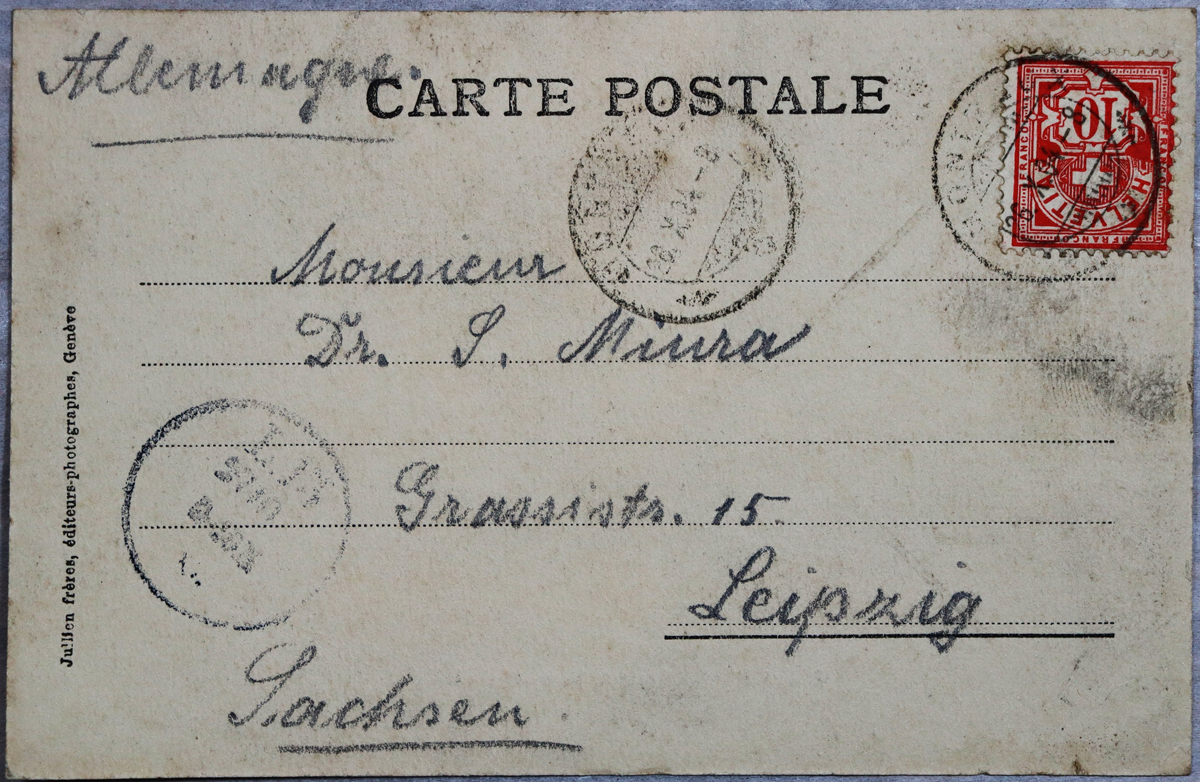 Allemagne.
CARTE POSTALE
10
HELVETIA
FRANCO
Monsieur
Dr. S. Miura
Grassistr. 15.
Leipzig
Sachsen.
Jullien frères, éditeurs-photographes, Genève